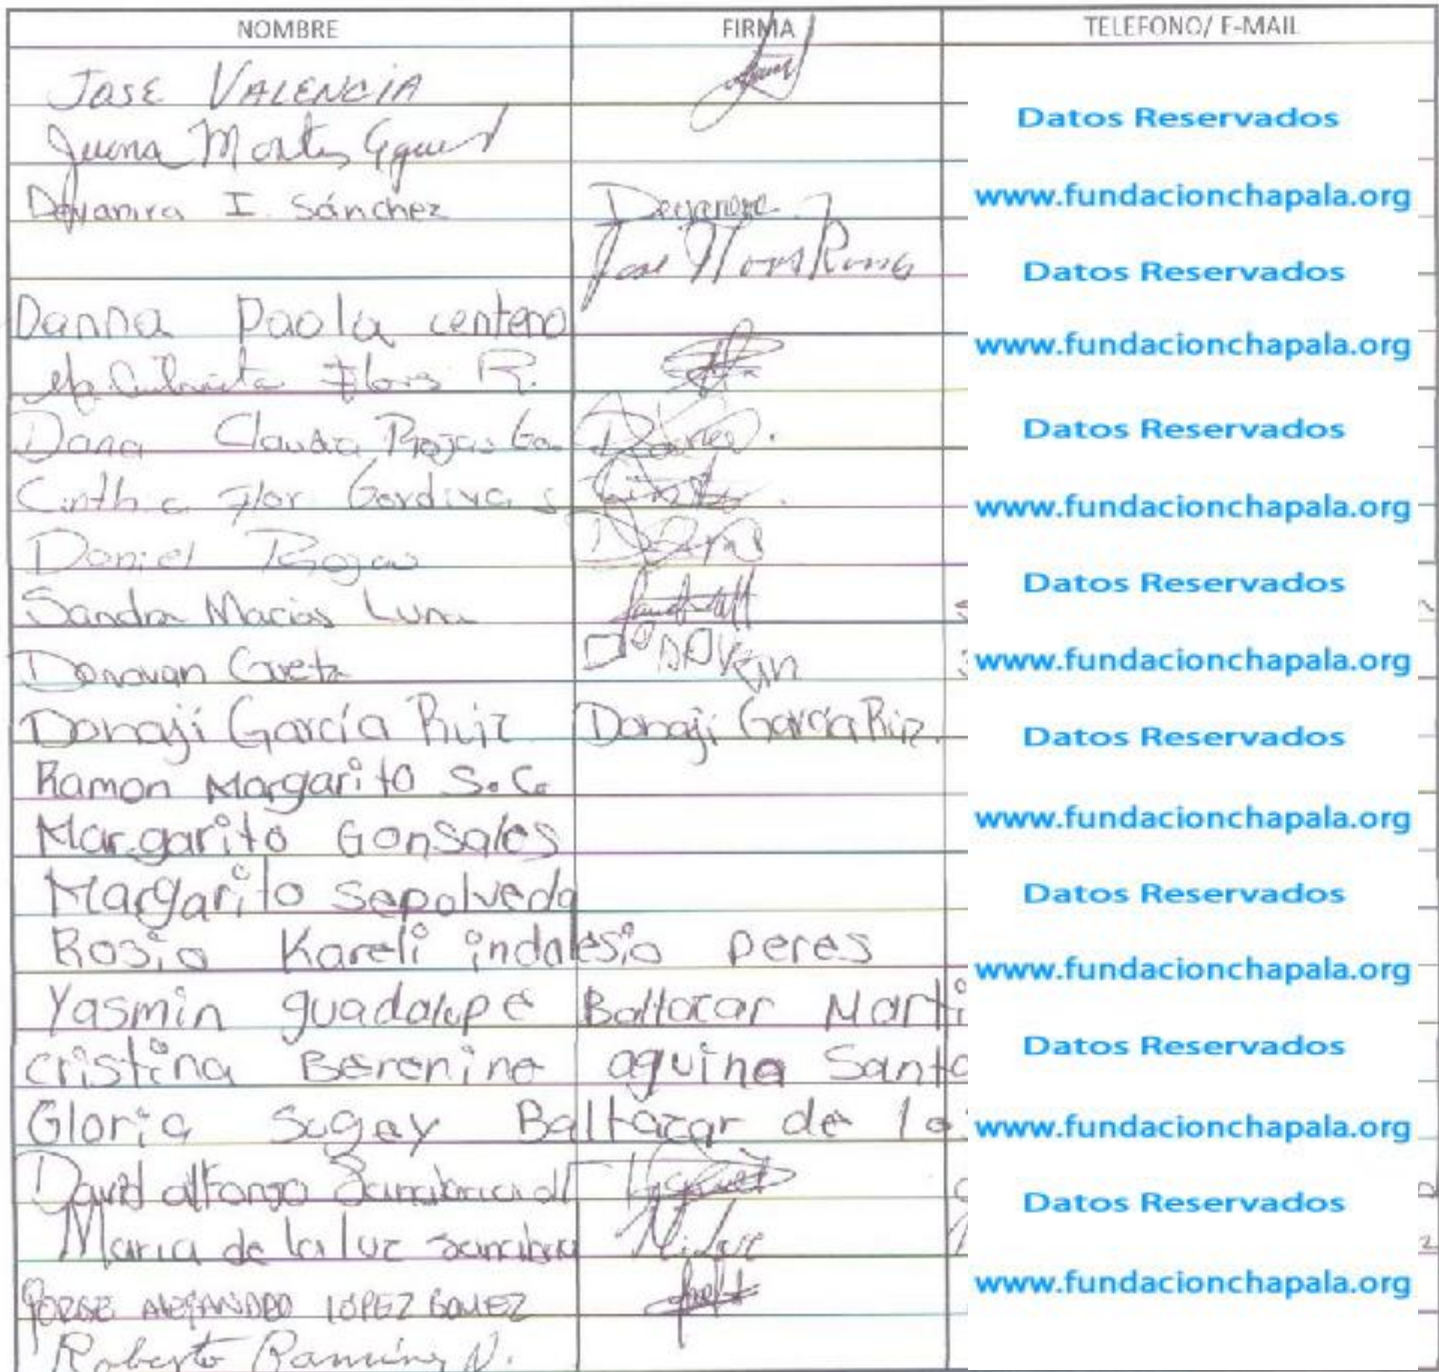 NOMBRE FIRMA TELEFONO/ E-MAIL
JOSE VALENCIA
Datos Reservados
Juana Montes
Deyanira I. Sánchez Deyanira
www.fundacionchapala.org
Jose Flores
Datos Reservados
Danna Paola centeno
www.fundacionchapala.org
Ma Flores R.
Dana Claudia Rojas Ga
Datos Reservados
Cinthia Flor Gordiva S
www.fundacionchapala.org
Daniel Rojas
Datos Reservados
Sandra Macias Luna
Donovan Cueta
www.fundacionchapala.org
Donaji García Ruiz Donaji García Ruiz.
Datos Reservados
Ramon Margarito S. C.
Margarito Gonsales
www.fundacionchapala.org
Margarito Sepolveda
Datos Reservados
Rosio Kareli indalesio peres
www.fundacionchapala.org
Yasmin guadalupe Baltazar Marti
cristina Berenine aquino Santo
Datos Reservados
Gloria Sugey Baltazar de lo
www.fundacionchapala.org
David alfonso
Datos Reservados
Maria de la luz M. Luz
JORGE ALEJANDRO LÓPEZ GOMEZ
www.fundacionchapala.org
Roberto Ramirez N.